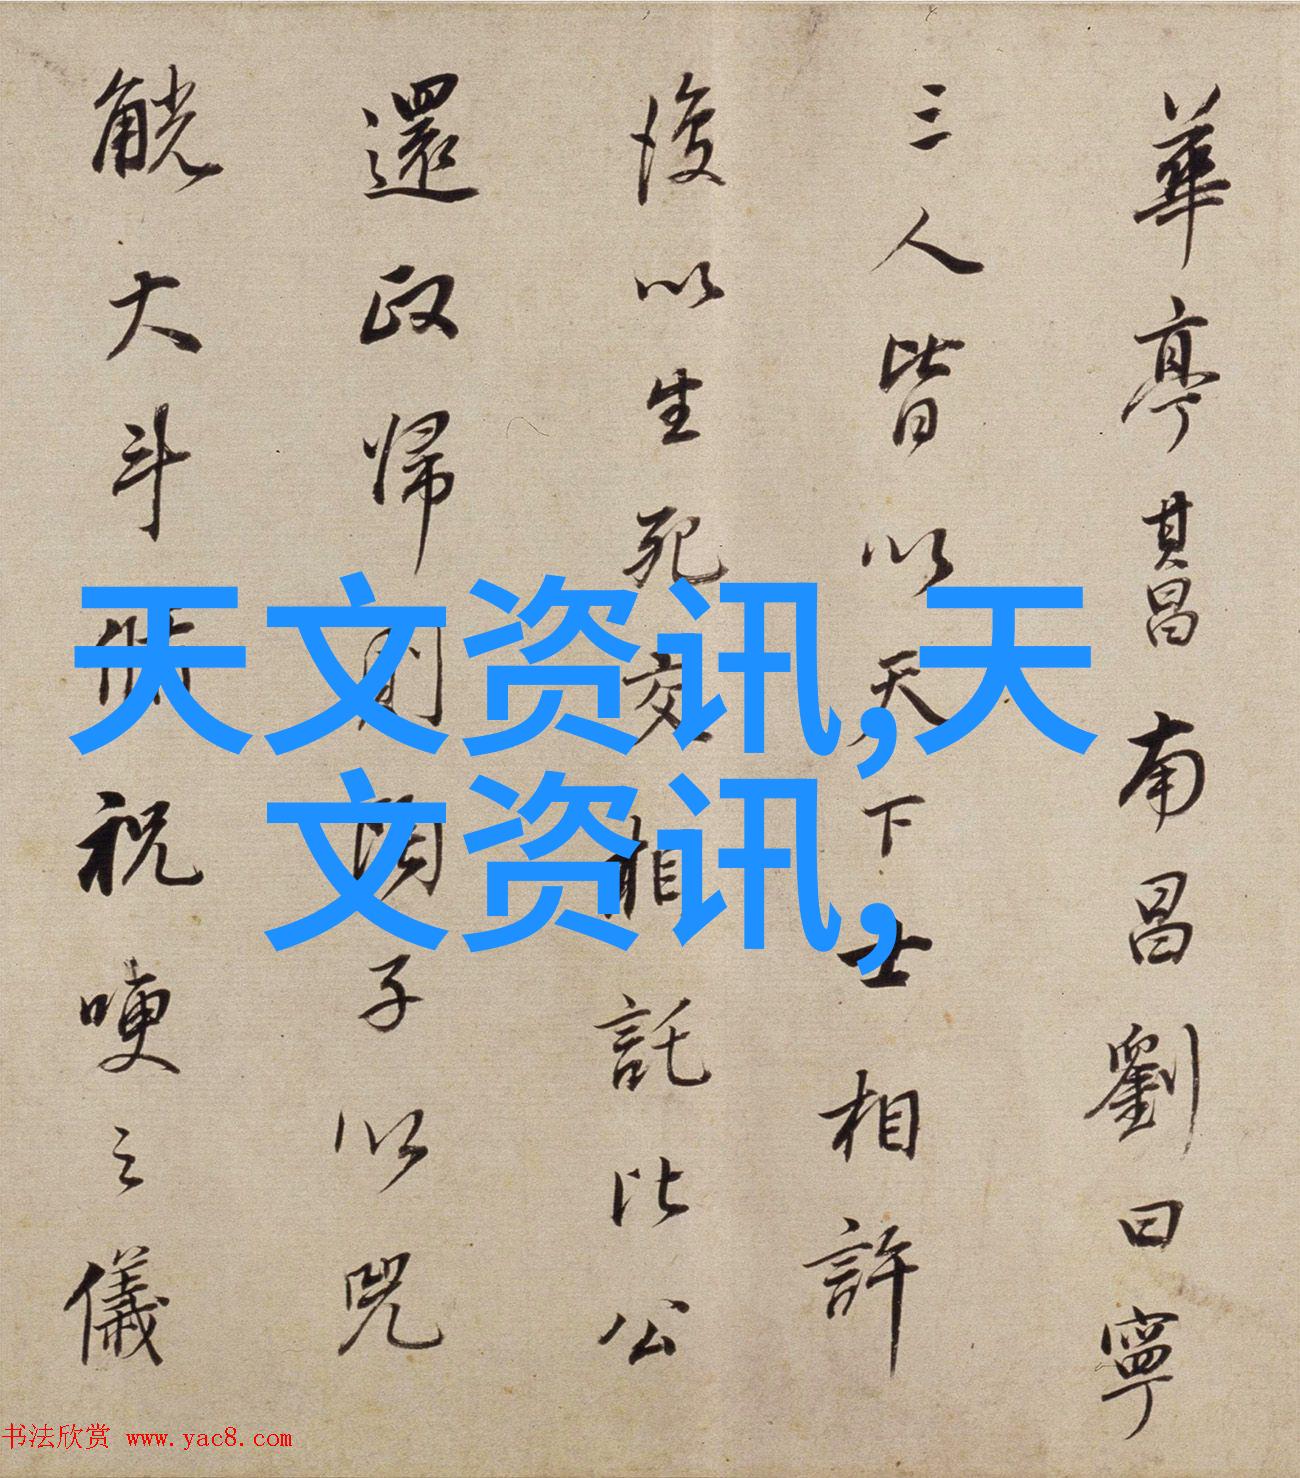 華亭其昌南昌劉曰寧
三人皆以天下士相許
後以生死交相託比公
還政歸則門子以兕
觥大斗脩祝哽之儀
天文资讯,天
文资讯,
书法欣赏 www.yac8.com